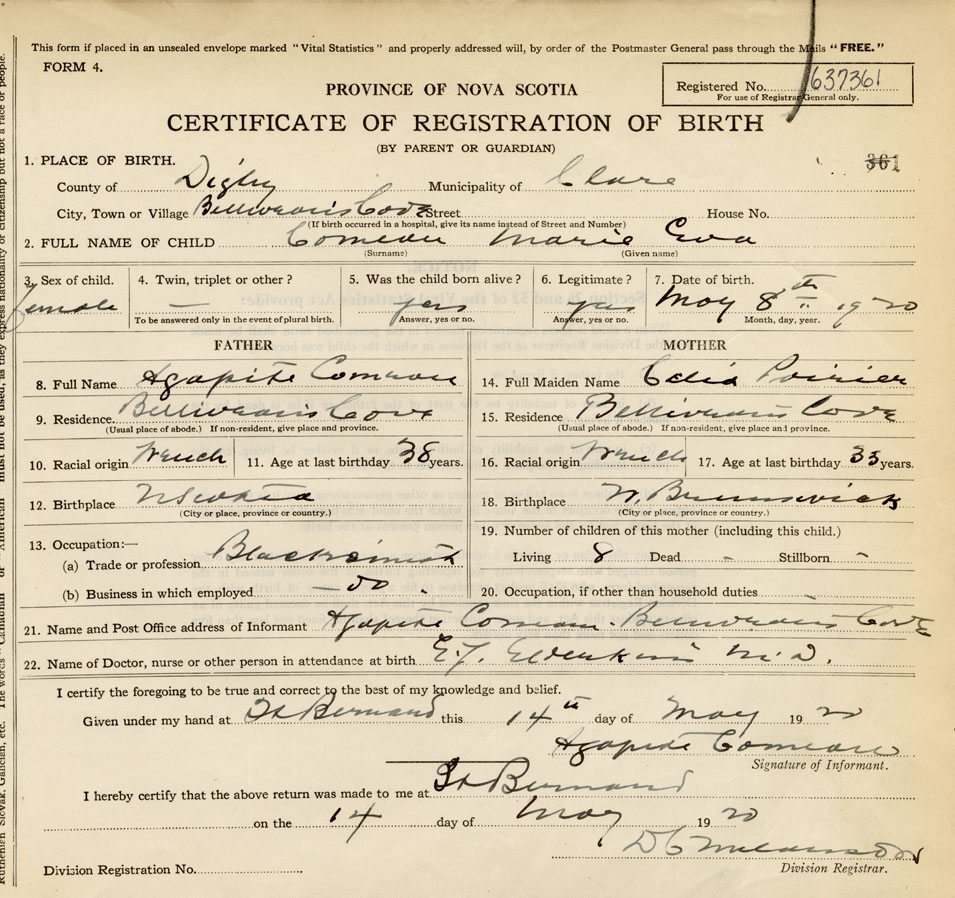 This form if placed in an unsealed envelope marked "Vital Statistics" and properly addressed will, by order of the Postmaster General pass through the Mails "FREE."
FORM 4.
Registered No. 637361
For use of Registrar General only.
PROVINCE OF NOVA SCOTIA
CERTIFICATE OF REGISTRATION OF BIRTH
(BY PARENT OR GUARDIAN)
361
1. PLACE OF BIRTH.
County of Digby Municipality of Clare
City, Town or Village Belliveau's Cove Street House No.
(If birth occurred in a hospital, give its name instead of Street and Number)
2. FULL NAME OF CHILD Comeau Marie Eva
(Surname) (Given name)
3. Sex of child. 4. Twin, triplet or other? 5. Was the child born alive? 6. Legitimate? 7. Date of birth.
female — yes yes May 8th 1920
To be answered only in the event of plural birth. Answer, yes or no. Answer, yes or no. Month, day, year.
FATHER MOTHER
8. Full Name Agapite Comeau 14. Full Maiden Name Celia Poirier
9. Residence Belliveau's Cove 15. Residence Belliveau's Cove
(Usual place of abode.) If non-resident, give place and province. (Usual place of abode.) If non-resident, give place and province.
10. Racial origin French 11. Age at last birthday 38 years. 16. Racial origin French 17. Age at last birthday 33 years.
12. Birthplace N Scotia 18. Birthplace N. Brunswick
(City or place, province or country.) (City or place, province or country.)
19. Number of children of this mother (including this child.)
13. Occupation:—
(a) Trade or profession Blacksmith Living 8 Dead - Stillborn -
(b) Business in which employed — do 20. Occupation, if other than household duties
21. Name and Post Office address of Informant Agapite Comeau - Belliveau's Cove
22. Name of Doctor, nurse or other person in attendance at birth E.J. Elderkin M.D.
I certify the foregoing to be true and correct to the best of my knowledge and belief.
Given under my hand at St Bernard this 14th day of May 1920
Agapite Comeau
Signature of Informant.
I hereby certify that the above return was made to me at St Bernard
on the 14 day of May 1920
Division Registration No. Division Registrar.